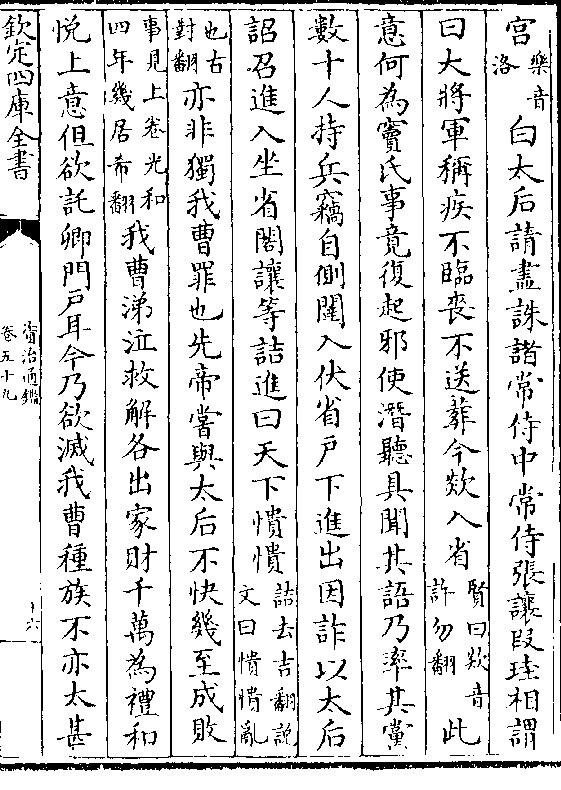 宫樂音洛白太后請盡誅諸常侍中常侍張讓段珪相謂
曰大將軍稱疾不臨喪不送葬今欻入省賢曰欻音許勿翻此
意何為竇氏事竟復起邪使潛聽具聞其語乃率其黨
數十人持兵竊自側闥入伏省户下進出因詐以太后
詔召進入坐省閤讓等詰進曰天下憒憒詰去吉翻說文曰憒憒亂
也古對翻亦非獨我曹罪也先帝嘗與太后不快幾至成敗
事見上卷光和四年幾居希翻我曹涕泣救解各出家財千萬為禮和
悅上意但欲託卿門户耳今乃欲滅我曹種族不亦太甚
欽定四庫全書
資治通鑑
卷五十九
十六